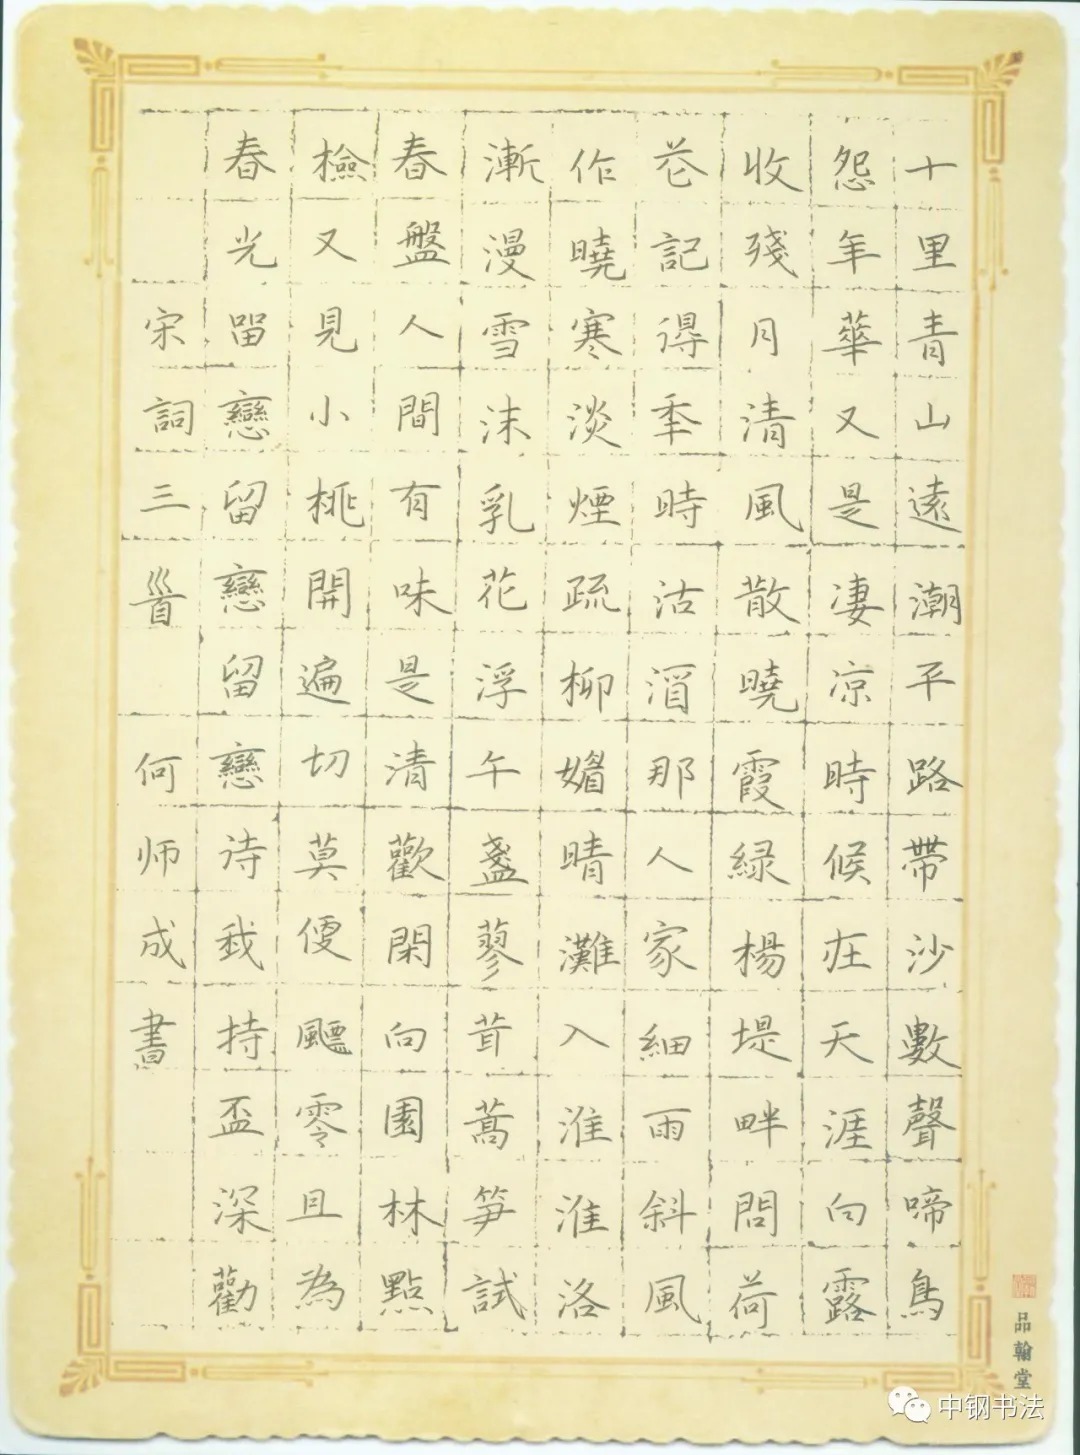 十里青山遠潮平路帶沙數聲啼鳥
怨年華又是凄凉時候在天涯白露
收殘月清風散曉霞緑楊堤畔問荷
花記得秊時沽酒那人家細雨斜風
作曉寒淡煙疏柳媚晴灘入淮淮洛
漸漫雪沫乳花浮午盞蓼茸蒿笋試
春盤人間有味是清歡閑向園林點
檢又見小桃開遍切莫便飄零且為
春光留戀留戀留戀诗我持盃深勸
宋詞三首 何师成書
品翰堂
中钢书法